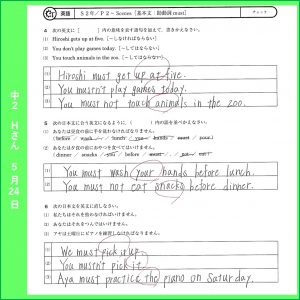 英語 S2年/P2-Scenes 【基本文:助動詞must】 チェック
4 次の英文に( )の意味を表す語句を加えて、書きかえなさい。
(1) Hiroshi gets up at five. [~しなければならない]
(2) You don't play games today. [~してはならない]
(3) You touch animals in the zoo. [~してはならない]
(1) Hiroshi must get up at five.
(2) You musn't play games today.
(3) You must not touch animals in the zoo.
5 次の日本文に合う英文になるように、( )内の語を並べかえなさい。
(1) あなたは昼食の前に手を洗わなければなりません。
(2) あなたは夕食の前におやつを食べてはいけません。
(1) You must wash your hands before lunch.
(2) You must not eat snacks before dinner.
6 次の日本文を英文に直しなさい。
(1) 私たちはそれを拾わなければいけません。
(2) あなたはそれを拾ってはいけません。
(3) アヤは土曜日にピアノを練習しなければなりません。
(1) We must pick it up.
(2) You musn't pick it.
(3) Aya must practice the piano on Saturday.
中2 Hさん 5月24日